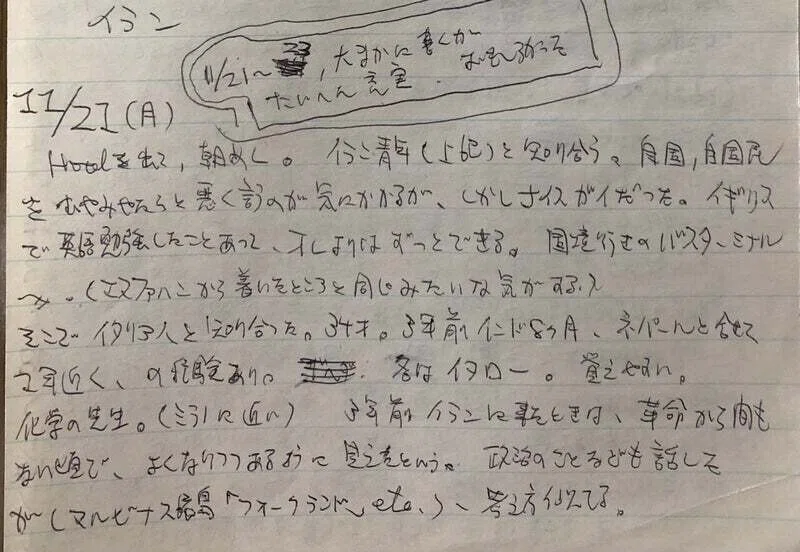 イラン
11/21〜23, 大まかに書くが おもしろかった
たいへん充実.
11/21(月)
Hotelを出て、朝めし。イラン青年(上記)と知り合う。自国,自国民
をむやみやたらと悪く言うのが気にかかるが、しかしナイスガイだった。イギリス
で英語勉強したことあって、オレよりはずっとできる。国境行きのバスターミナル
へ。(エスファハンから着いたところと同じみたいな気がする。)
そこでイタリア人と知り合った。34才。5年前インド8ヶ月、ネパールと合せて
2年近く、の経験あり。名はイタロー。覚えやすい。
化学の先生。(ミラノに近い) 5年前イランに来たときは、革命から間も
ない頃で、よくなりつつあるように見えたという。政治のことなども話した
が(マルビナス諸島「フォークランド」etc.)、考え方似てる。